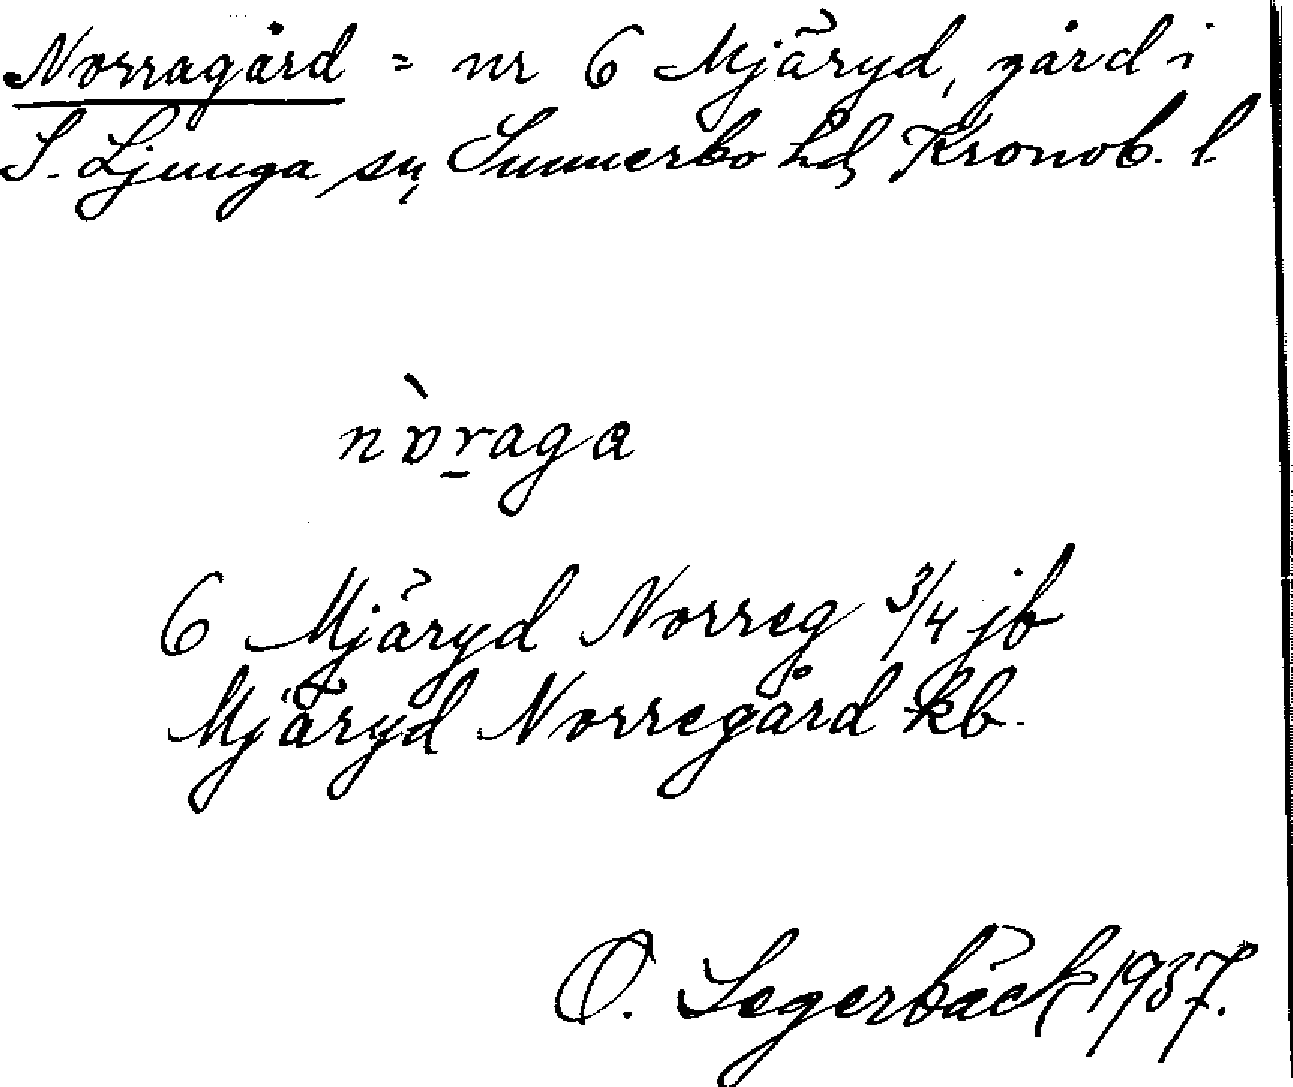 Norragård = nr 6 Mjäryd, gård i
S. Ljunga sn, Sunnerbo hd, Kronob. l
nɒ̀r̠aga
6 Mjäryd Norreg 3/4 jb
Mjäryd Norregård kb.
O. Segerbäck 1937.